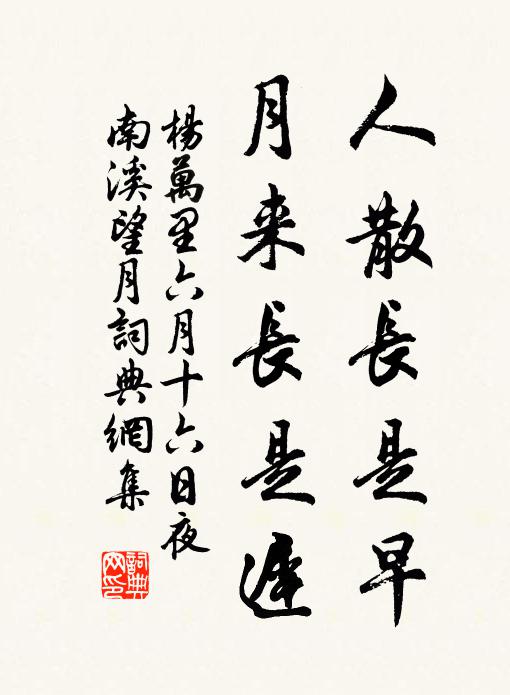 人散長是早
月来長是遲
楊萬里六月十六日夜
南溪望月詞典網集
詞典
网印